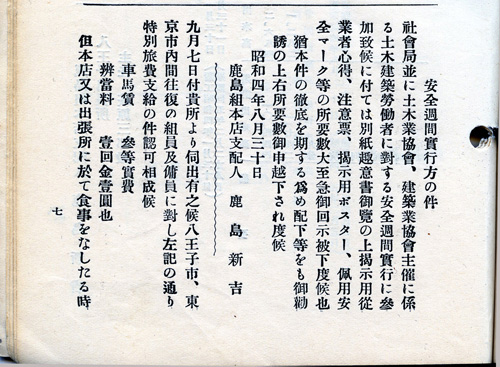 安全週間實行方の件
社會局並に土木業協會、建築業協會主催に係
る土木建築勞働者に對する安全週間實行に參
加致候に付ては別紙趣意書御覽の上揭示用從
業者心得、注意票、揭示用ポスター、佩用安
全マーク等の所要數大至急御回示被下度候也
猶本件の徹底を期する爲め配下等をも御勸
誘の上右所要數御申越下され度候
昭和四年八月三十日
鹿島組本店支配人 鹿島新吉
九月七日付貴所より伺出有之候八王子市、東
京市內間往復の組員及傭員に對し左記の通り
特別旅費支給の件認可相成候
車馬賃 參等實費
辨當料 壹回金壹圓也
但本店又は出張所に於て食事をなしたる時
七